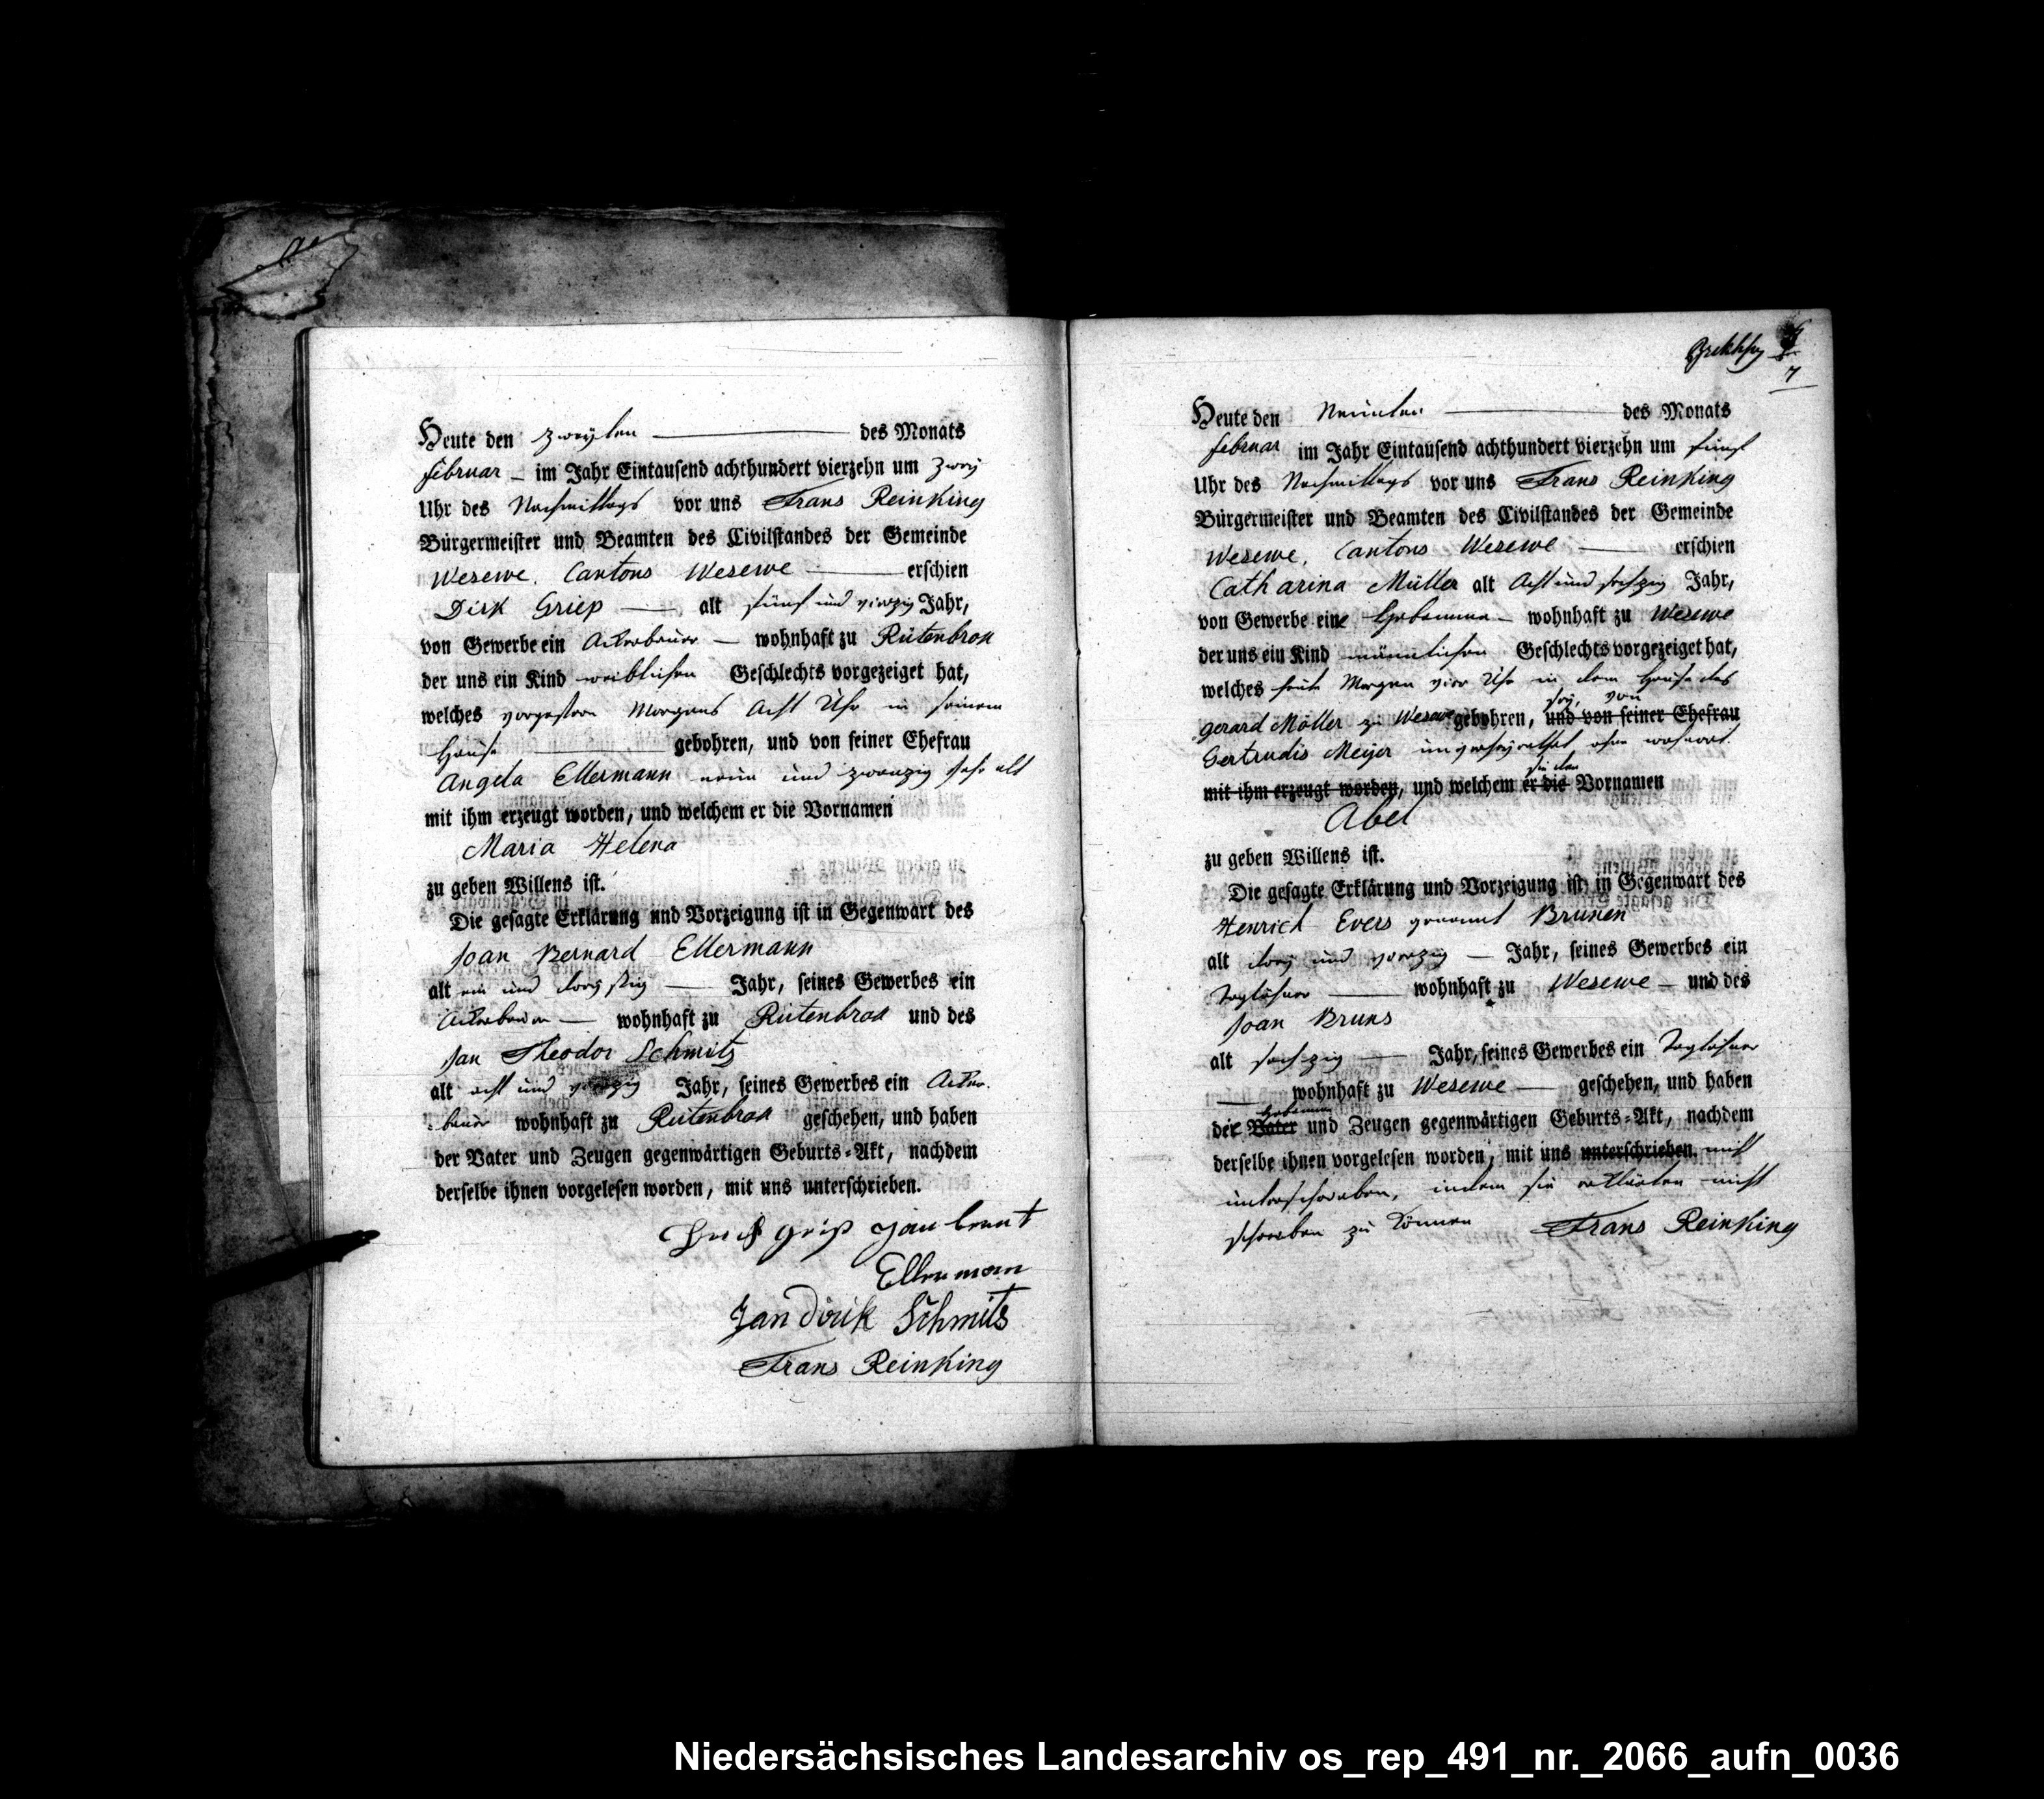 Heute den zweyten des Monats
februar – im Jahr Eintausend achthundert vierzehn um zwey
Uhr des Nachmittags vor uns Frans Reinking
Bürgermeister und Beamten des Civilstandes der Gemeinde
Wesewe. Cantons Wesewe erschien
Dirk Griep alt fünf und vierzig Jahr,
von Gewerbe ein Ackerbauer – wohnhaft zu Rütenbrok
der uns ein Kind weiblichen Geschlechts vorgezeiget hat,
welches vorgestern Morgens Acht Uhr in seinem
Hause gebohren, und von seiner Ehefrau
Angela Ellermann neun und zwanzig Jahr alt
mit ihm erzeugt worden, und welchem er die Vornamen
Maria Helena
zu geben Willens ist.
Die gesagte Erklärung und Vorzeigung ist in Gegenwart des
Joan Bernard Ellermann
alt ein und dreyssig Jahr, seines Gewerbes ein
Ackerbauer – wohnhaft zu Rütenbrok und des
Jan Theodor Schmitz
alt acht und vierzig Jahr, seines Gewerbes ein Acker-
bauer wohnhaft zu Rütenbrok geschehen, und haben
der Vater und Zeugen gegenwärtigen Geburts-Akt, nachdem
derselbe ihnen vorgelesen worden, mit uns unterschrieben.
griep Jan
Ellerman
Jan dirik Schmits
Frans Reinking
7
Heute den Neunten des Monats
februar im Jahr Eintausend achthundert vierzehn um fünf
Uhr des Nachmittags vor uns Frans Reinking
Bürgermeister und Beamten des Civilstandes der Gemeinde
Wesewe, Cantons Wesewe erschien
Catharina Müller alt Acht und sechzig Jahr,
von Gewerbe eine Hebamme – wohnhaft zu Wesewe
der uns ein Kind männlichen Geschlechts vorgezeiget hat,
welches heute Morgen vier Uhr in dem Hause des
sey, von
Gerard Möller zu Wesewe gebohren, und von seiner Ehefrau
Gertrudis Meijer unverheyrathet, ohne wohnort.
sie den
mit ihm erzeugt worden, und welchem er die Vornamen
Abel
zu geben Willens ist.
Die gesagte Erklärung und Vorzeigung ist in Gegenwart des
Henrich Evers genannt Brunen
alt drey und vierzig – Jahr, seines Gewerbes ein
Taglöhner wohnhaft zu Wesewe – und des
Joan Bruns
alt sechzig Jahr, seines Gewerbes ein Taglöhner
wohnhaft zu Wesewe – geschehen, und haben
Hebamme
der Vater und Zeugen gegenwärtigen Geburts-Akt, nachdem
derselbe ihnen vorgelesen worden, mit uns unterschrieben. nicht
unterschrieben, indem sie erklärten nicht
schreiben zu können Frans Reinking
Niedersächsisches Landesarchiv os_rep_491_nr._2066_aufn_0036